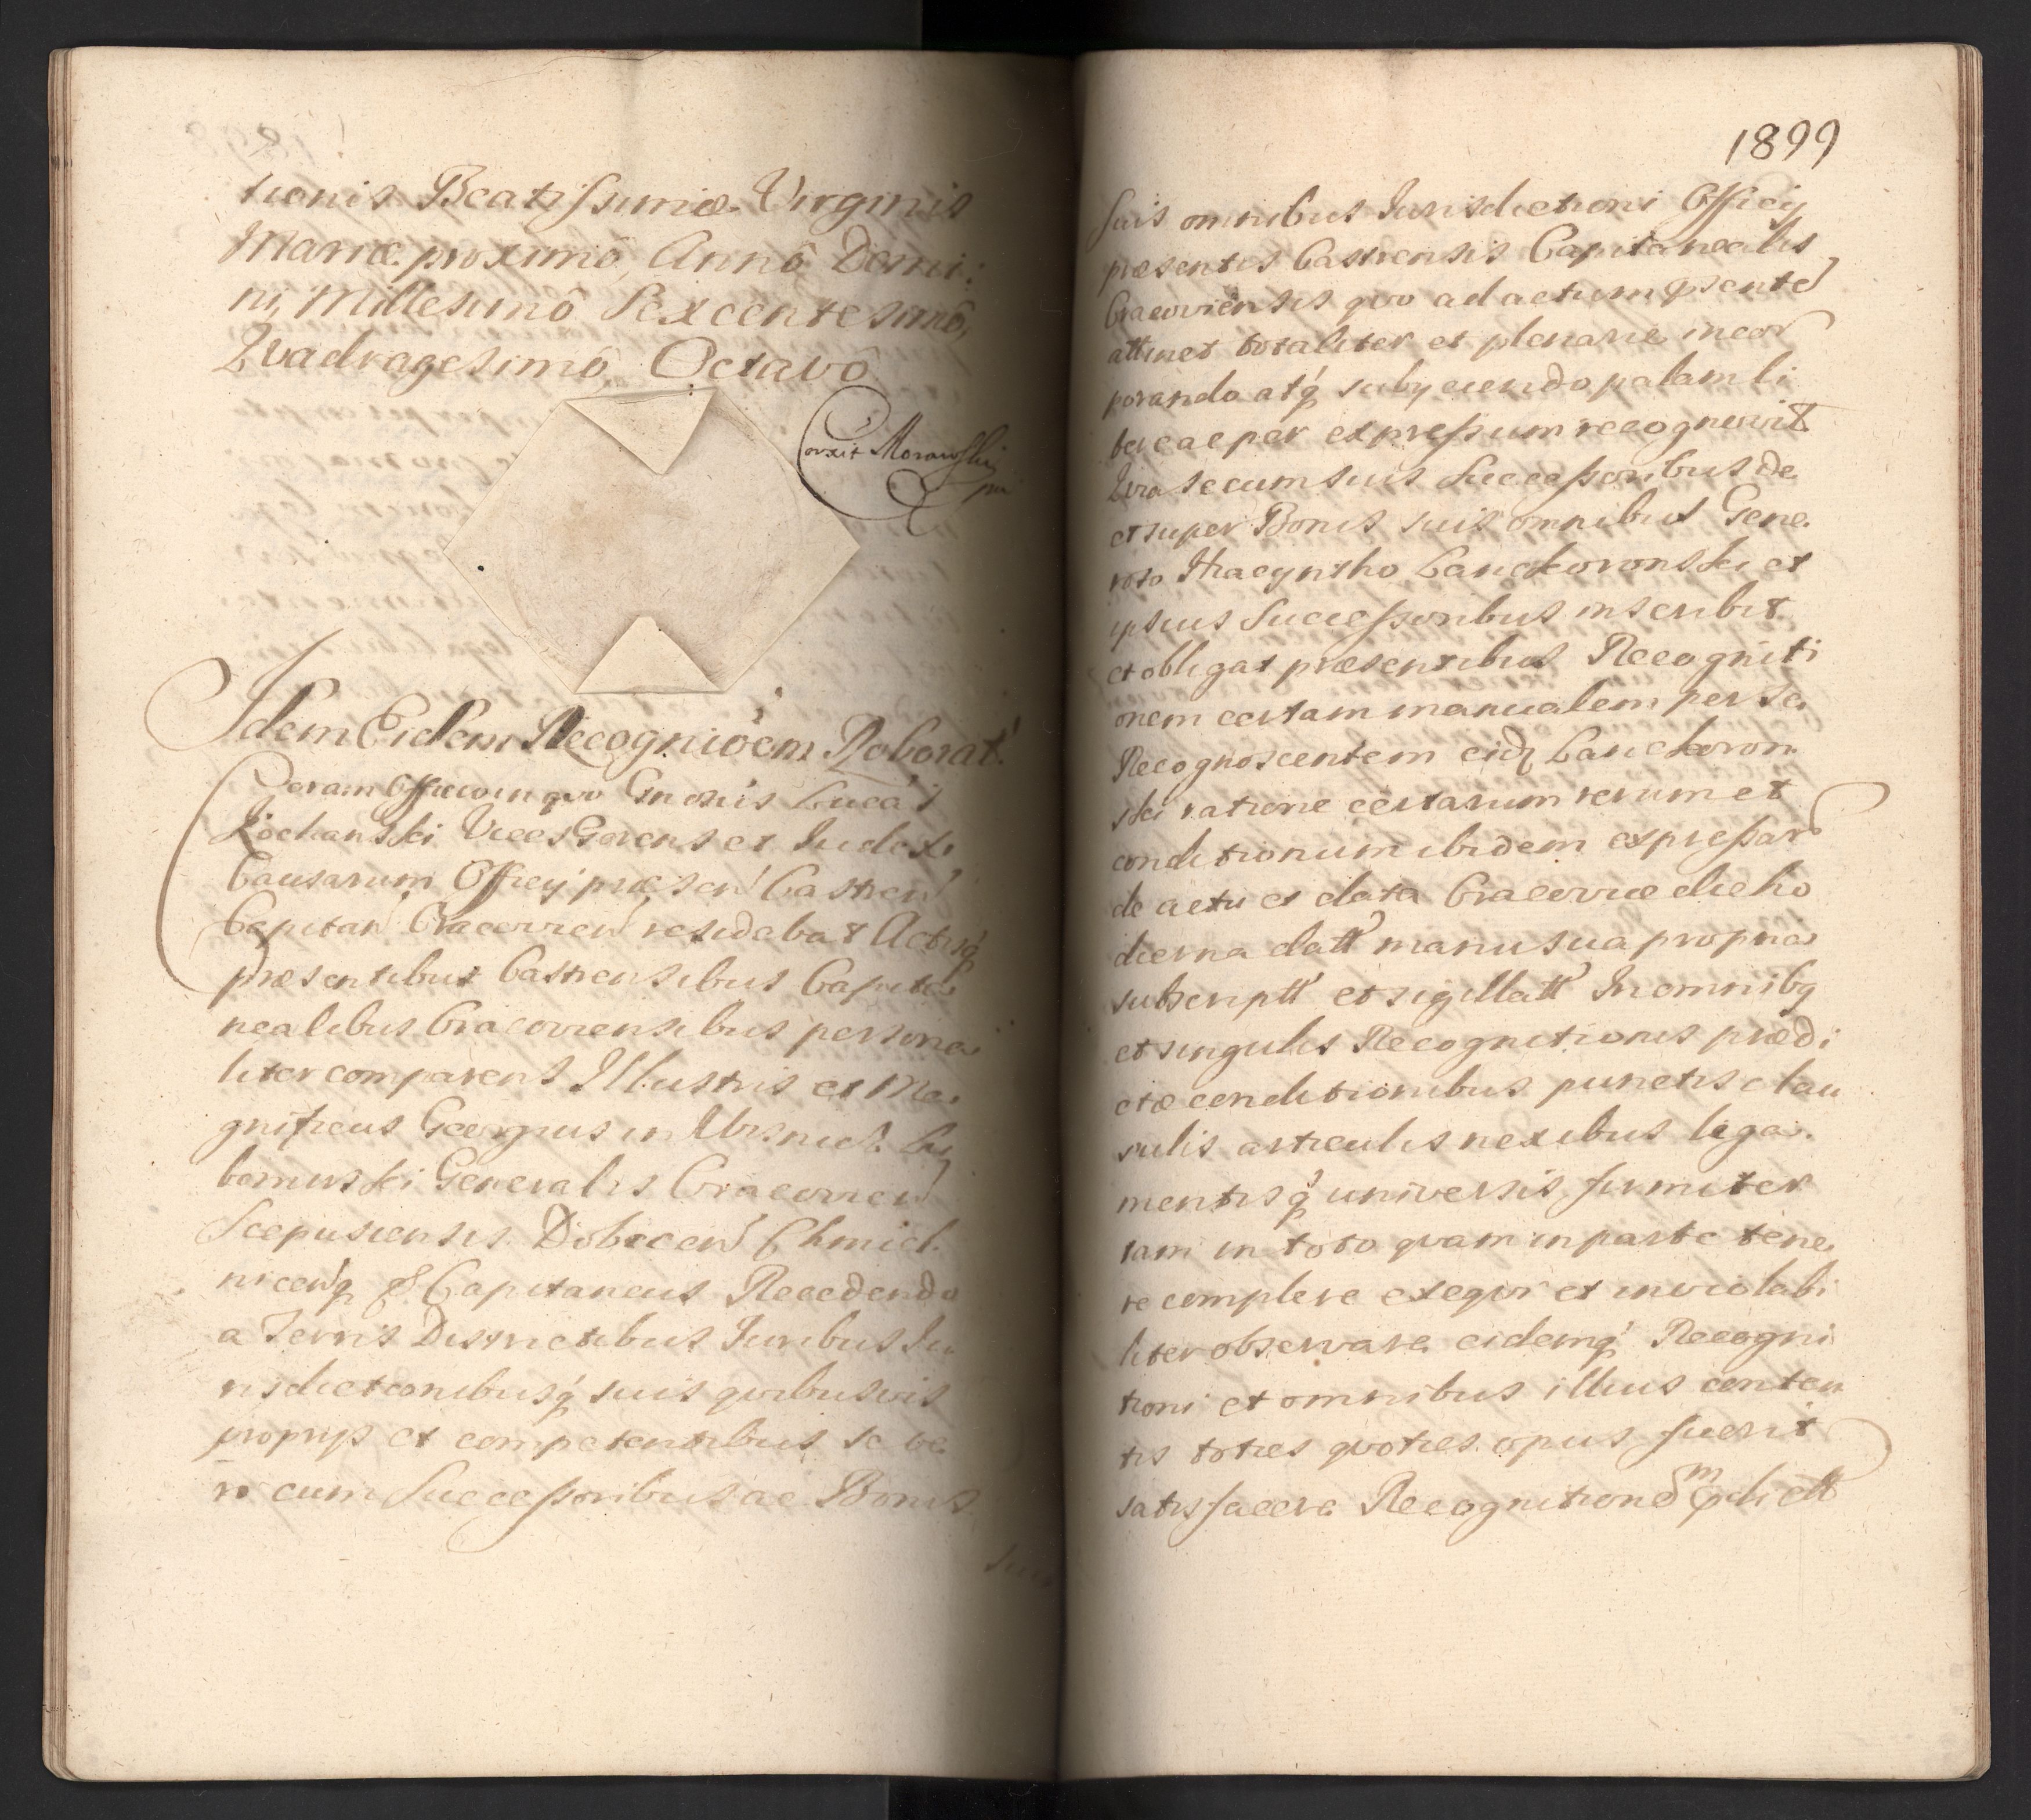 tionis Beatissimæ Virginis
Mariæ proximô, Annô Domi:
ni, Millesimô Sexcentesimô,
Quadragesimô, Octavô
Corexit Morawski
mp
Idem Eidem Recognicōem Roborat
Coram Officio in quo Gnosus Lucas
Kochanski Vices Gerens et Judex
Causarum Officij præsen Castren
Capitan Cracovien residebat Actisq́
præsentibus Castrensibus Capita
nealibus Cracoviensibus persona
liter comparens Illustris et Ma
gnificus Georgius in Wisnicz Lu
bomirski Generalis Cracovien
Scepusiensis Dobecen Chmiel
nicenq & Capitaneus Recedendo
a Terris Districtibus Juribus Ju
risdictionibusq́ suis quibusvis
proprijs et competentibus se ve
ro cum Successoribus ac Bonis
suis
1899
suis omnibus Jurisdictioni Officij
præsentis Castrensis Capitanealis
Cracoviensis quo ad actum psente
attinet totaliter et plenarie incor
porando atq́ subyciendo palam li
bere ac per expressum recognovit
Quia secum suis Successoribus de
et super Bonis suis omnibus Gene
roso Hyacyntho Lanckoronski et
ipsius Successoribus inscribit
et obligat præsentibus Recogniti
onem certam manualem per se
Recognoscentem eidq Lanckoron
ski ratione certarum rerum et
conditionum ibidem expressar
de actu et data Cracoviæ die ho
dierna datt manu sua propria
subscriptt et sigillatt In omniby
et singulis Recognitionis prædi
ctæ conditionibus punctis clau
sulis articulis nexibus liga
mentisq́ universis firmiter
tam in toto quam in parte tene
re complere exequi et inviolabi
liter observare eidemq́ Recogni
tioni et omnibus illius conten
tis toties quoties opus fuerit
satisfacere Recognitionē m pdictt